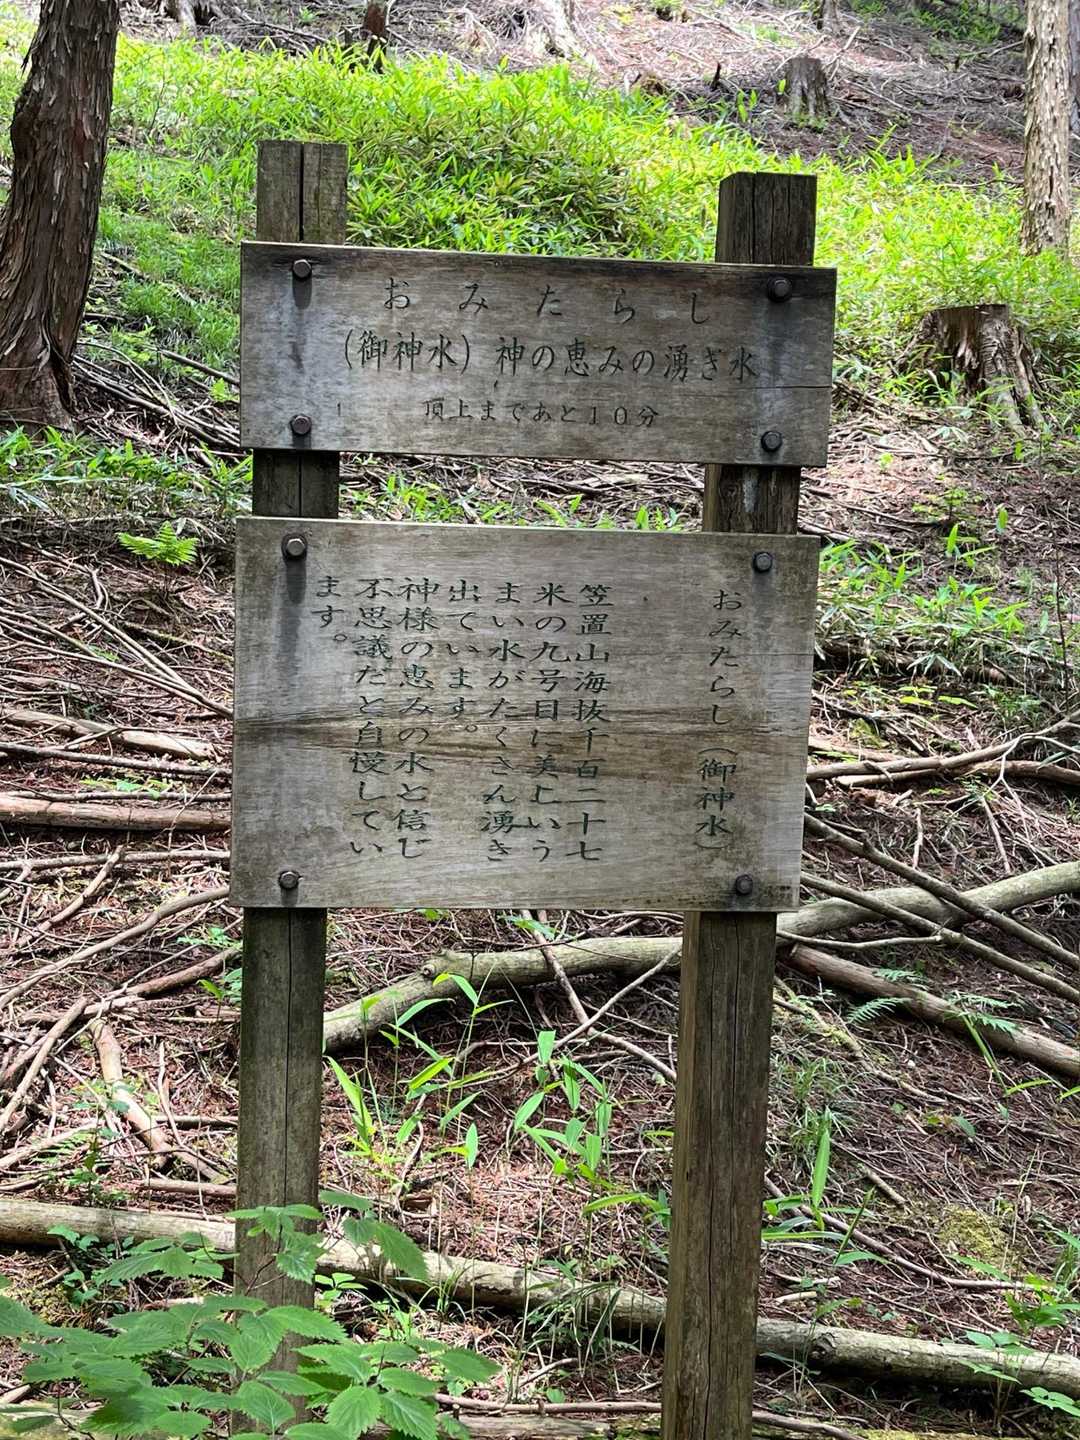 おみたらし
（御神水）神の恵みの湧ぎ水
頂上まであと１０分
おみたらし（御神水）
笠置山海抜千百二十七
米の九号目に美しいう
まい水がたくさん湧き
出ています。
神様の恵みの水と信じ
不思議だと自慢してい
ます。